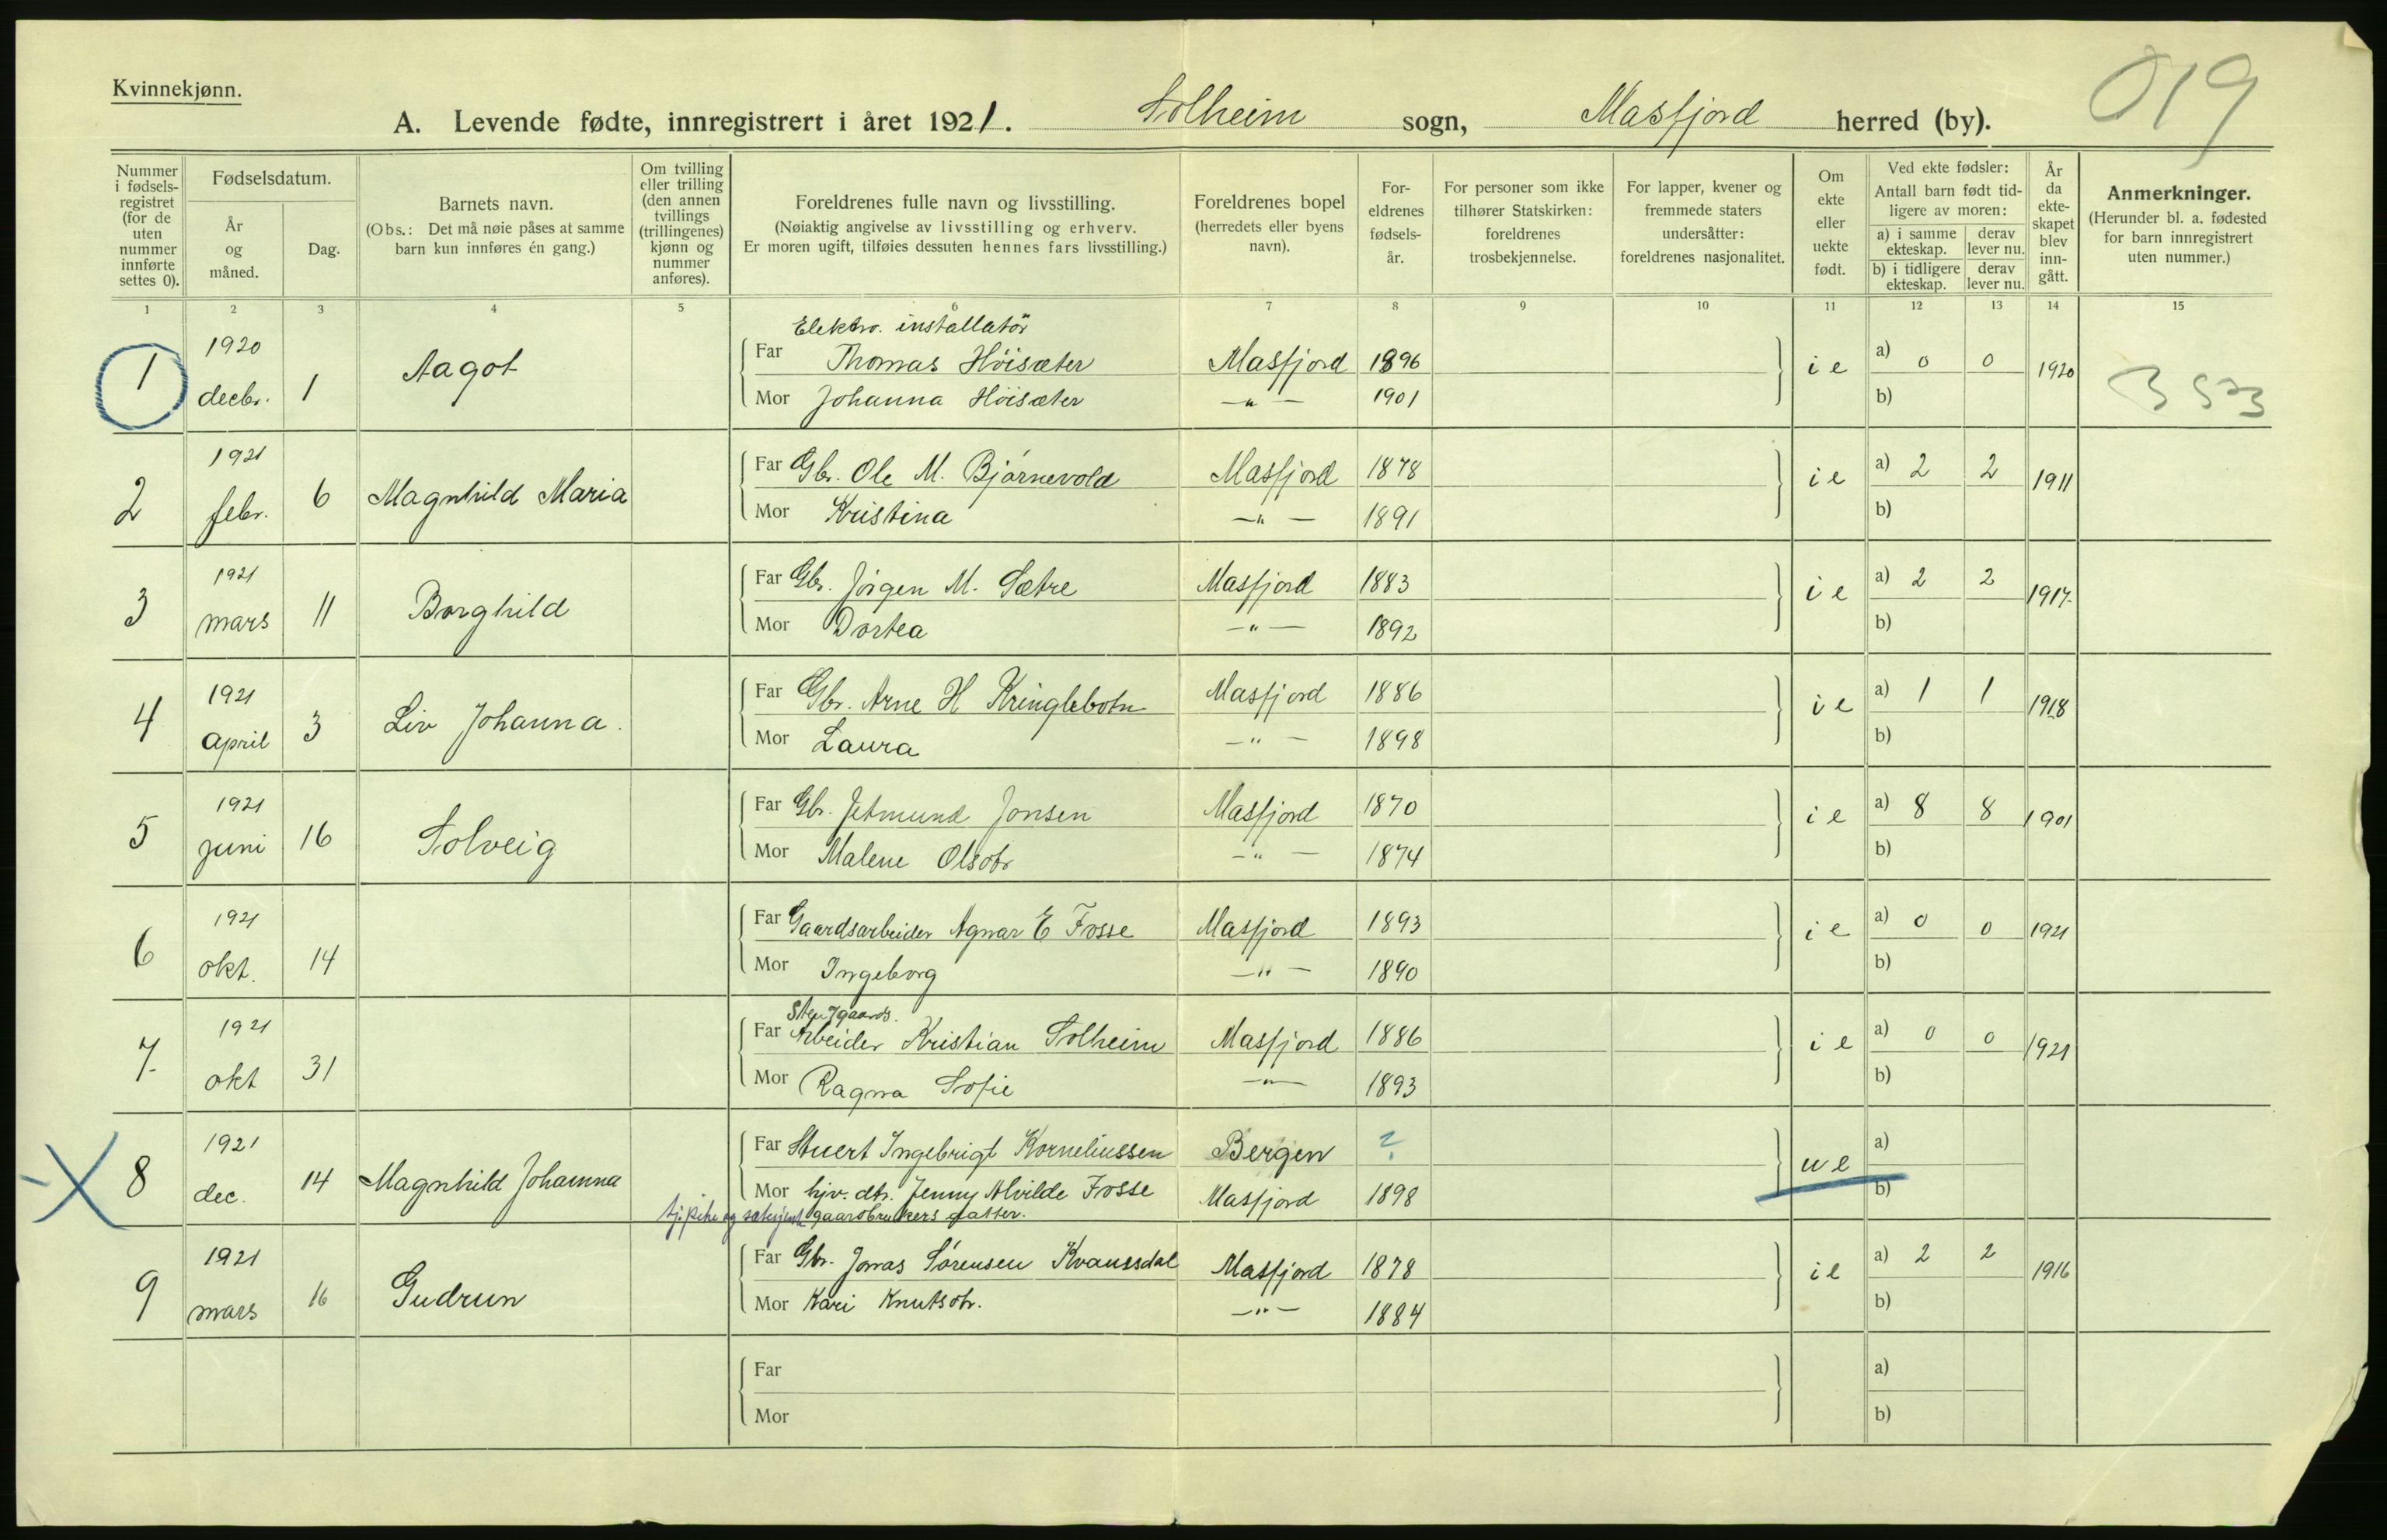 Kvinnekjønn.
019
A. Levende fødte, innregistrert i året 1921. Solheim sogn, Masfjord herred (by).
Nummer i fødselsregistret (for de uten nummer innførte settes 0).
Fødselsdatum.
År og måned.
Dag.
Barnets navn.
(Obs.: Det må nøie påses at samme barn kun innføres én gang.)
Om tvilling eller trilling (den annen tvillings (trillingenes) kjønn og nummer anføres).
Foreldrenes fulle navn og livsstilling.
(Nøiaktig angivelse av livsstilling og erhverv.
Er moren ugift, tilføies dessuten hennes fars livsstilling.)
Foreldrenes bopel
(herredets eller byens navn).
For-eldrenes fødsels-år.
For personer som ikke tilhører Statskirken: foreldrenes trosbekjennelse.
For lapper, kvener og fremmede staters undersåtter: foreldrenes nasjonalitet.
Om ekte eller uekte født.
Ved ekte fødsler:
Antall barn født tidligere av moren:
a) i samme ekteskap. derav lever nu.
b) i tidligere ekteskap. derav lever nu.
År da ekteskapet blev inngått.
Anmerkninger.
(Herunder bl. a. fødested for barn innregistrert uten nummer.)
1 2 3 4 5 6 7 8 9 10 11 12 13 14 15
Elektro. installatör
1 1920 decbr. 1 Aagot Far Thomas Höisæter Masfjord 1896 i e a) 0 0 1920
Mor Johanna Höisæter —"— 1901 b)
2 1921 febr. 6 Magnhild Maria Far Gbr. Ole M. Bjørnevold Masfjord 1878 i e a) 2 2 1911
Mor Kristina —"— 1891 b)
3 1921 mars 11 Borghild Far Gbr. Jörgen M. Sætre Masfjord 1883 i e a) 2 2 1917.
Mor Dortea —"— 1892 b)
4 1921 April 3 Liv Johanna. Far Gbr. Arne H Kringlebotn Masfjord 1886 i e a) 1 1 1918
Mor Laura —"— 1898 b)
5 1921 juni 16 Solveig Far Gbr. Jetmund Jonsen Masfjord 1870 i e a) 8 8 1901
Mor Malene Olsdtr —"— 1874 b)
6 1921 okt. 14 Far Gaardsarbeider Agnar E Fosse Masfjord 1893 i e a) 0 0 1921
Mor Ingeborg —"— 1890 b)
7 1921 okt 31 Far Arbeider Kristian Solheim Masfjord 1886 i e a) 0 0 1921
Mor Ragna Sofie —"— 1893 b)
8 1921 dec. 14 Magnhild Johanna Far Stuert Ingebrigt Korneliussen Bergen ? u e a)
Mor hjv. dtr. Jenny Alvilde Fosse Masfjord 1898 b)
tj.pike og gaardbrukers datter.
9 1921 mars 16 Gudrun Far Gbr. Jonas Sørensen Kvamsdal Masfjord 1878 i e a) 2 2 1916
Mor Kari Knutsdtr. —"— 1884 b)
Far a)
Mor b)